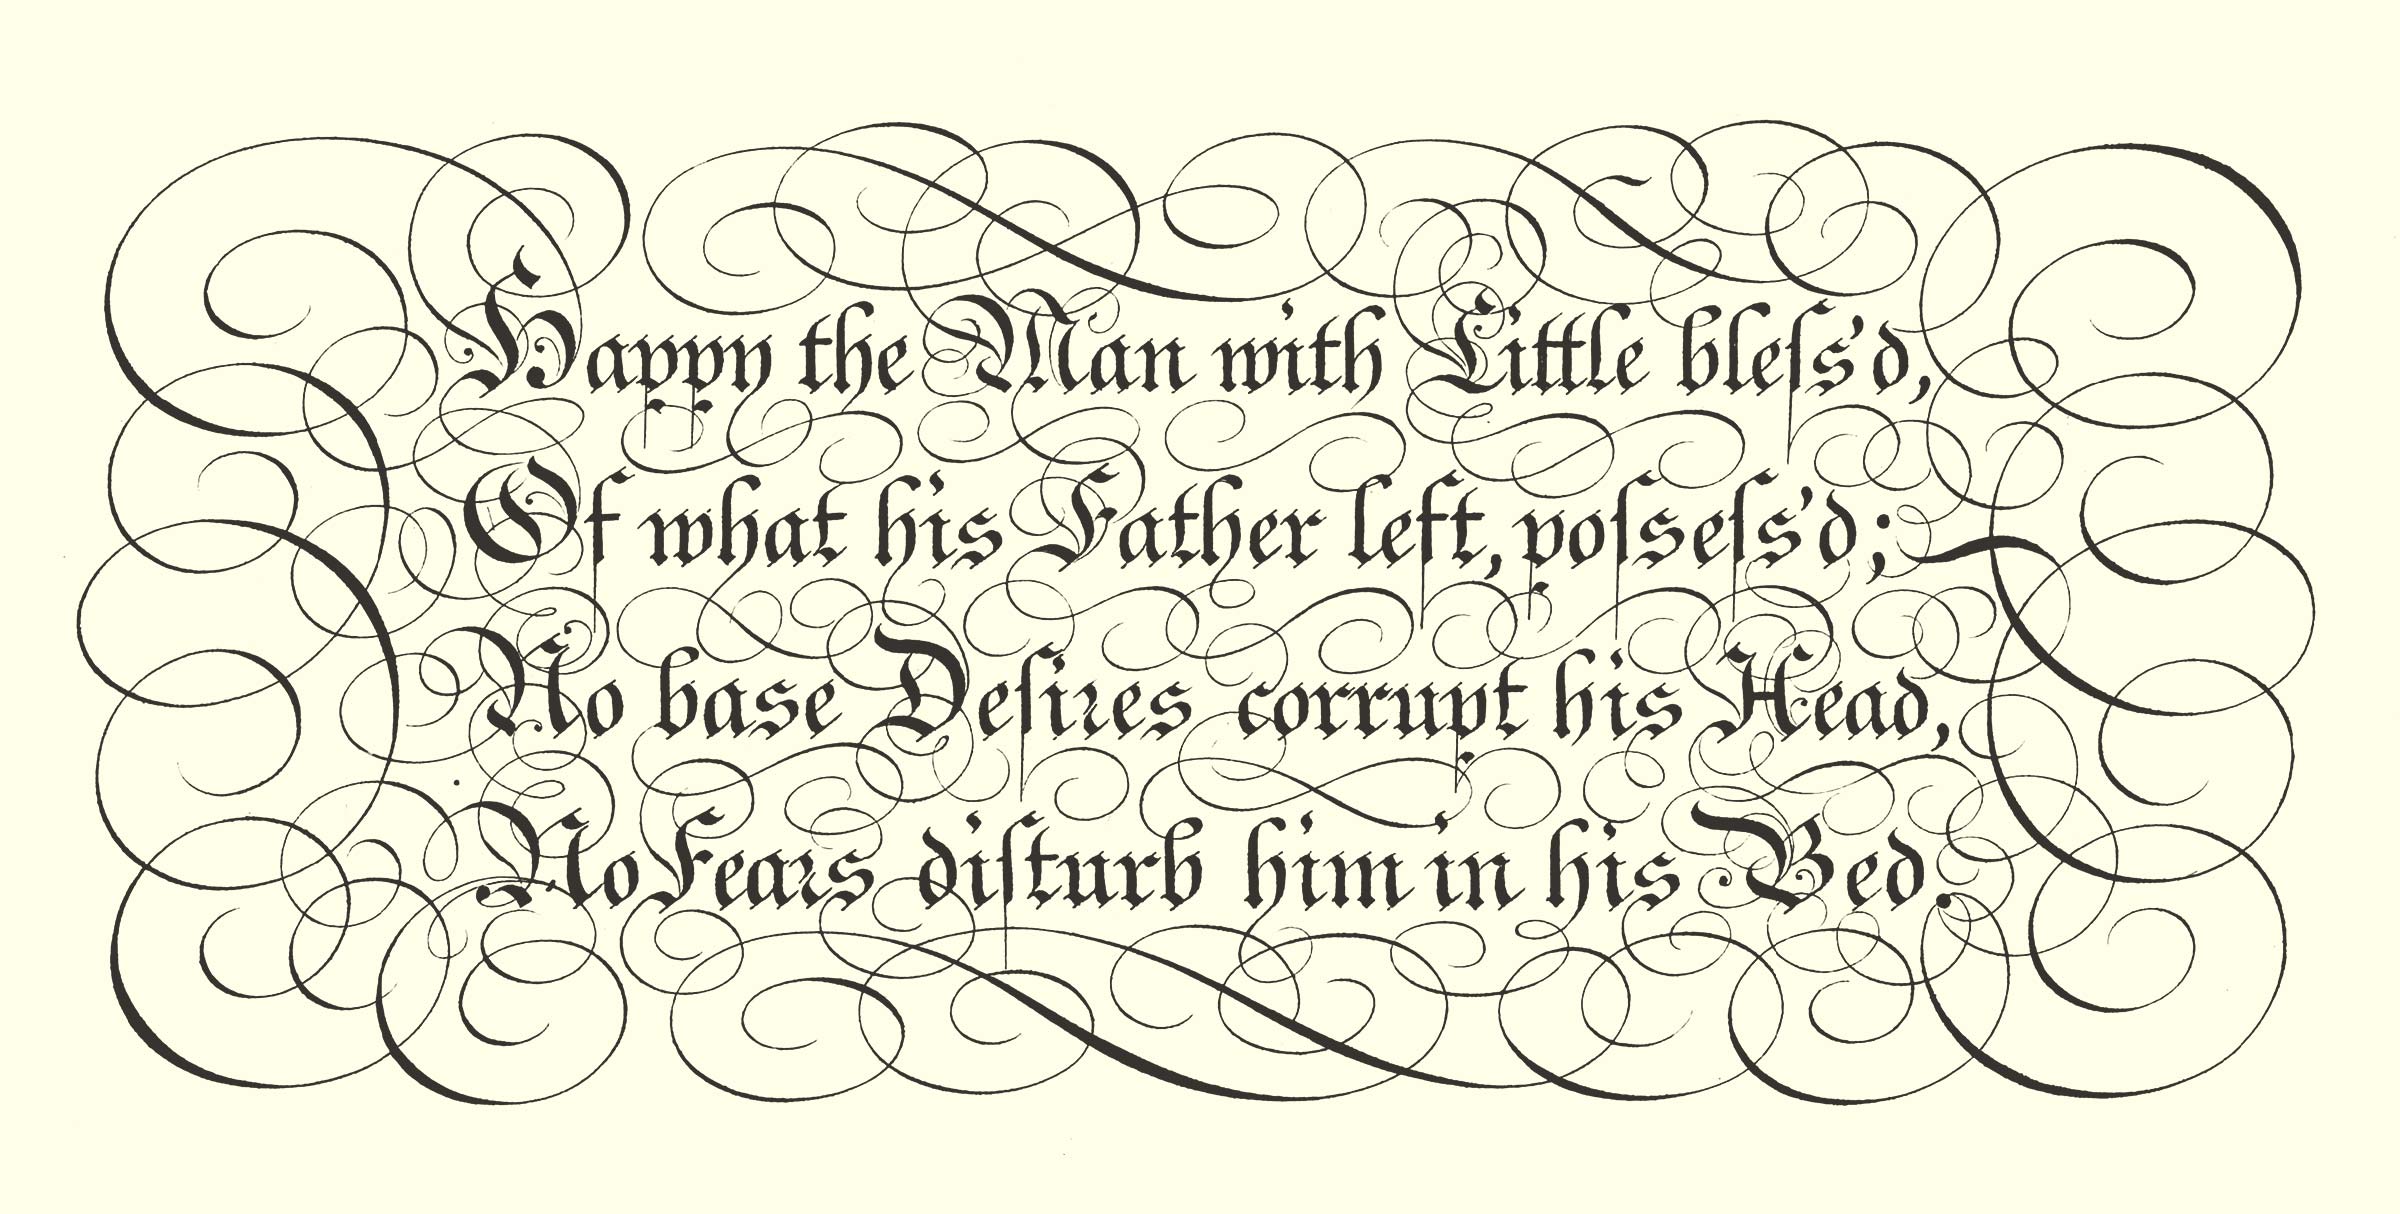 Happy the Man with Little bleſs'd,
Of what his Father left, poſseſs'd;
No base Deſires corrupt his Head,
No Fears diſturb him in his Bed.